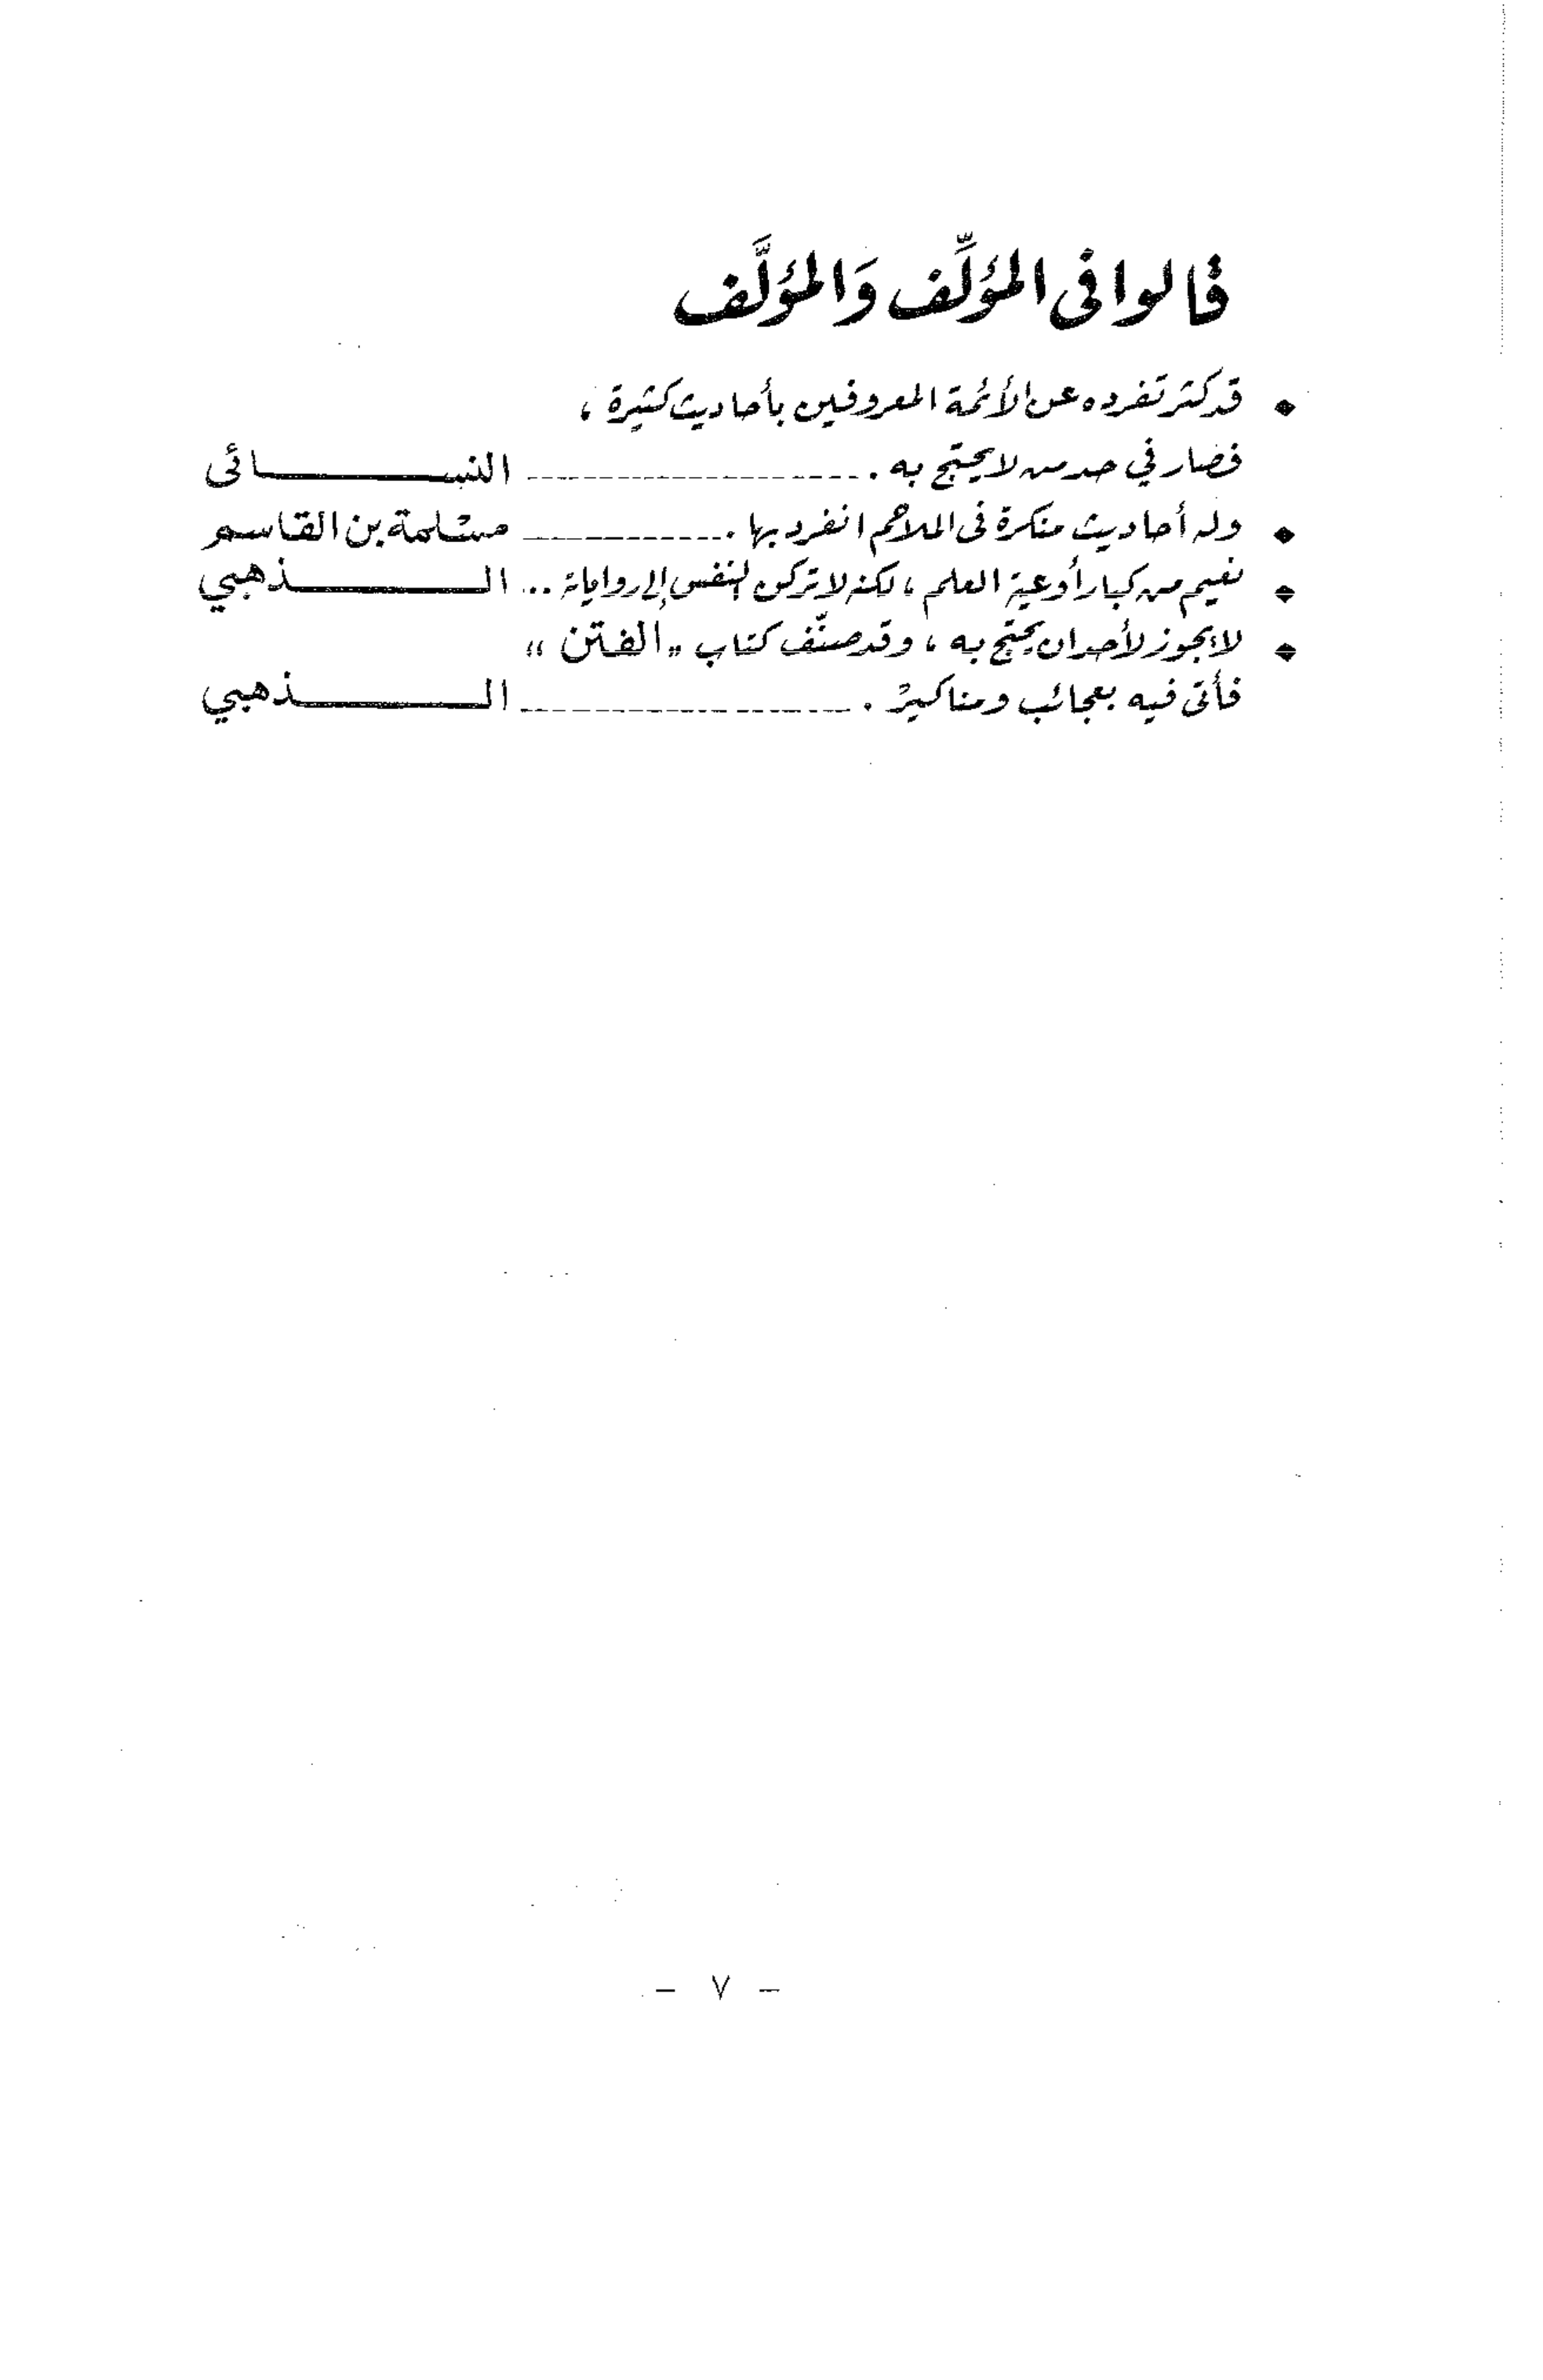 قالوا فى المؤلِّف وَالمؤلَّف
◆ قد كثر تفرده عن الأئمة المعروفين بأحاديث كثيرة ،
فصار في حد من لا يحتج به . ------------------ النسائى
◆ وله أحاديث منكرة فى الملاحم انفرد بها . ------------ مسلمة بن القاسم
◆ نعيم من كبار أوعية العلم ، لكنه لا تركن النفس إلى رواياته .. الذهبي
◆ لا يجوز لأحد ان يحتج به ، وقد صنّف كتاب « الفتن »
فأتى فيه بعجائب ومناكير . ------------------ الذهبي
– ٧ –